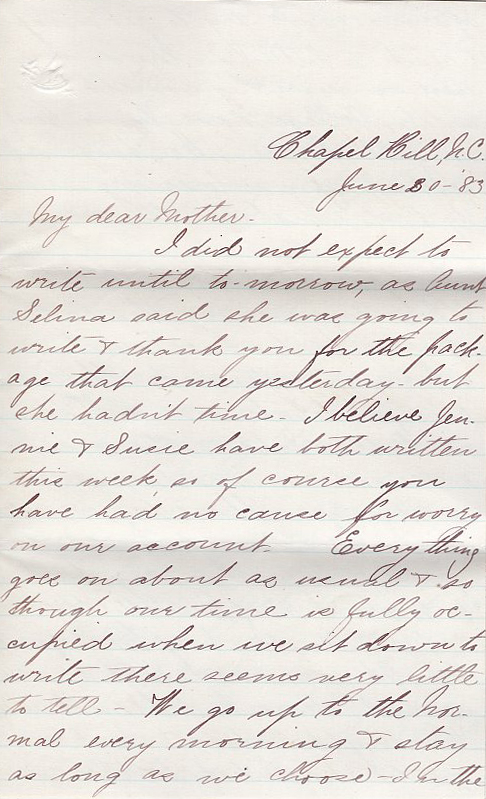 Chapel Hill, N.C.
June 30-'83
My dear Mother-
I did not expect to
write until to-morrow, as Aunt
Selina said she was going to
write & thank you for the pack-
age that came yesterday- but
she hadn't time- I believe Jen-
nie & Susie have both written
this week, so of course you
have had no cause for worry
on our account- Everything
goes on about as usual & so
though our time is fully oc-
cupied when we sit down to
write there seems very little
to tell- We go up to the Nor-
mal every morning & stay
as long as we choose- In the